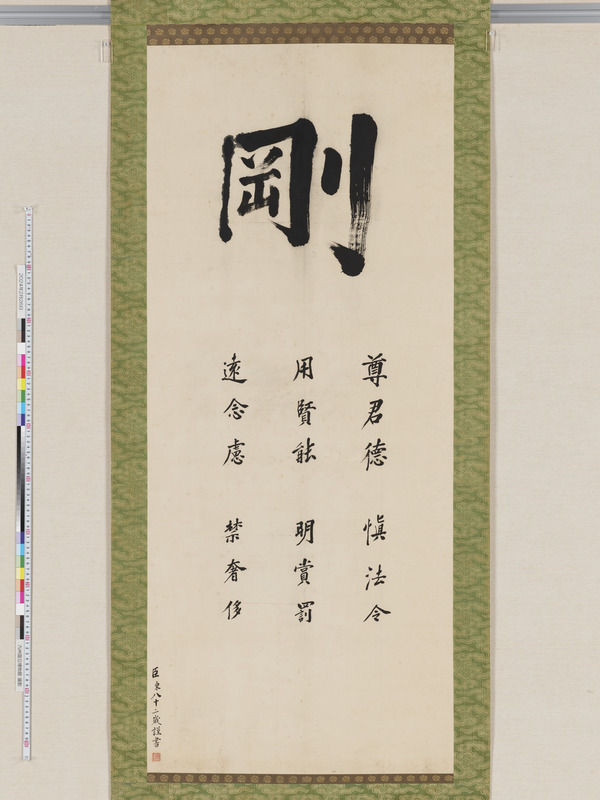 剛
尊君德 慎法令
用賢能 明賞罰
遠念慮 禁奢侈
臣東八十二歲謹書